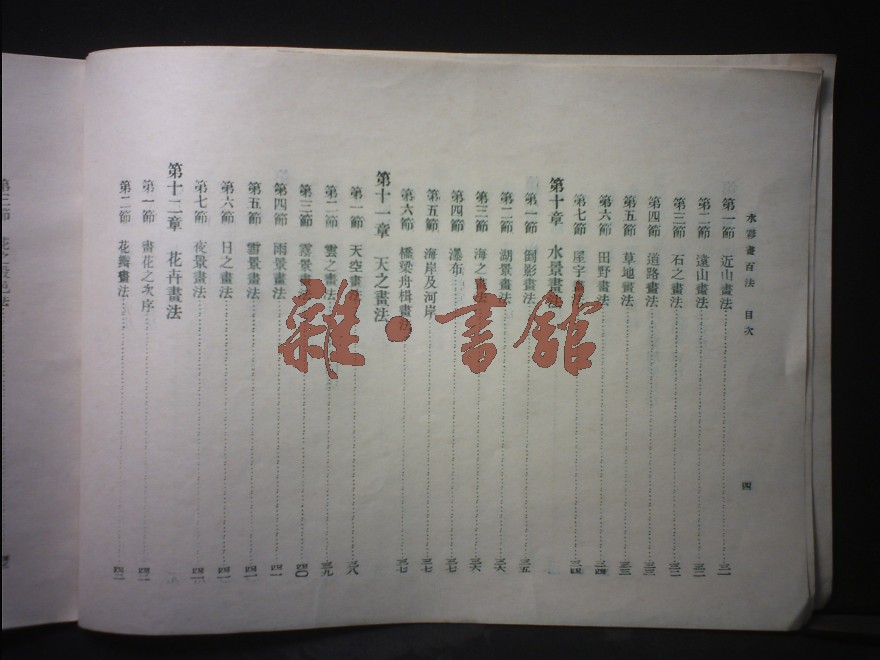 水彩畫百法　目次　四
第一節　近山畫法 三一
第二節　遠山畫法 三二
第三節　石之畫法 三二
第四節　道路畫法 三三
第五節　草地畫法 三三
第六節　田野畫法 三四
第七節　屋宇畫
第十章　水景畫法
第一節　倒影畫法 三五
第二節　湖景畫法 三六
第三節　海之畫法 三六
第四節　瀑布 三七
第五節　海岸及河岸 三七
第六節　橋梁舟楫畫法 三七
第十一章　天之畫法
第一節　天空畫法 三八
第二節　雲之畫法 三九
第三節　霞景畫法 四〇
第四節　雨景畫法 四一
第五節　雪景畫法 四一
第六節　日之畫法 四一
第七節　夜景畫法 四一
第十二章　花卉畫法
第一節　畫花之次序 四二
第二節　花瓣畫法 四二
第三節　花之設色法
雜·書館